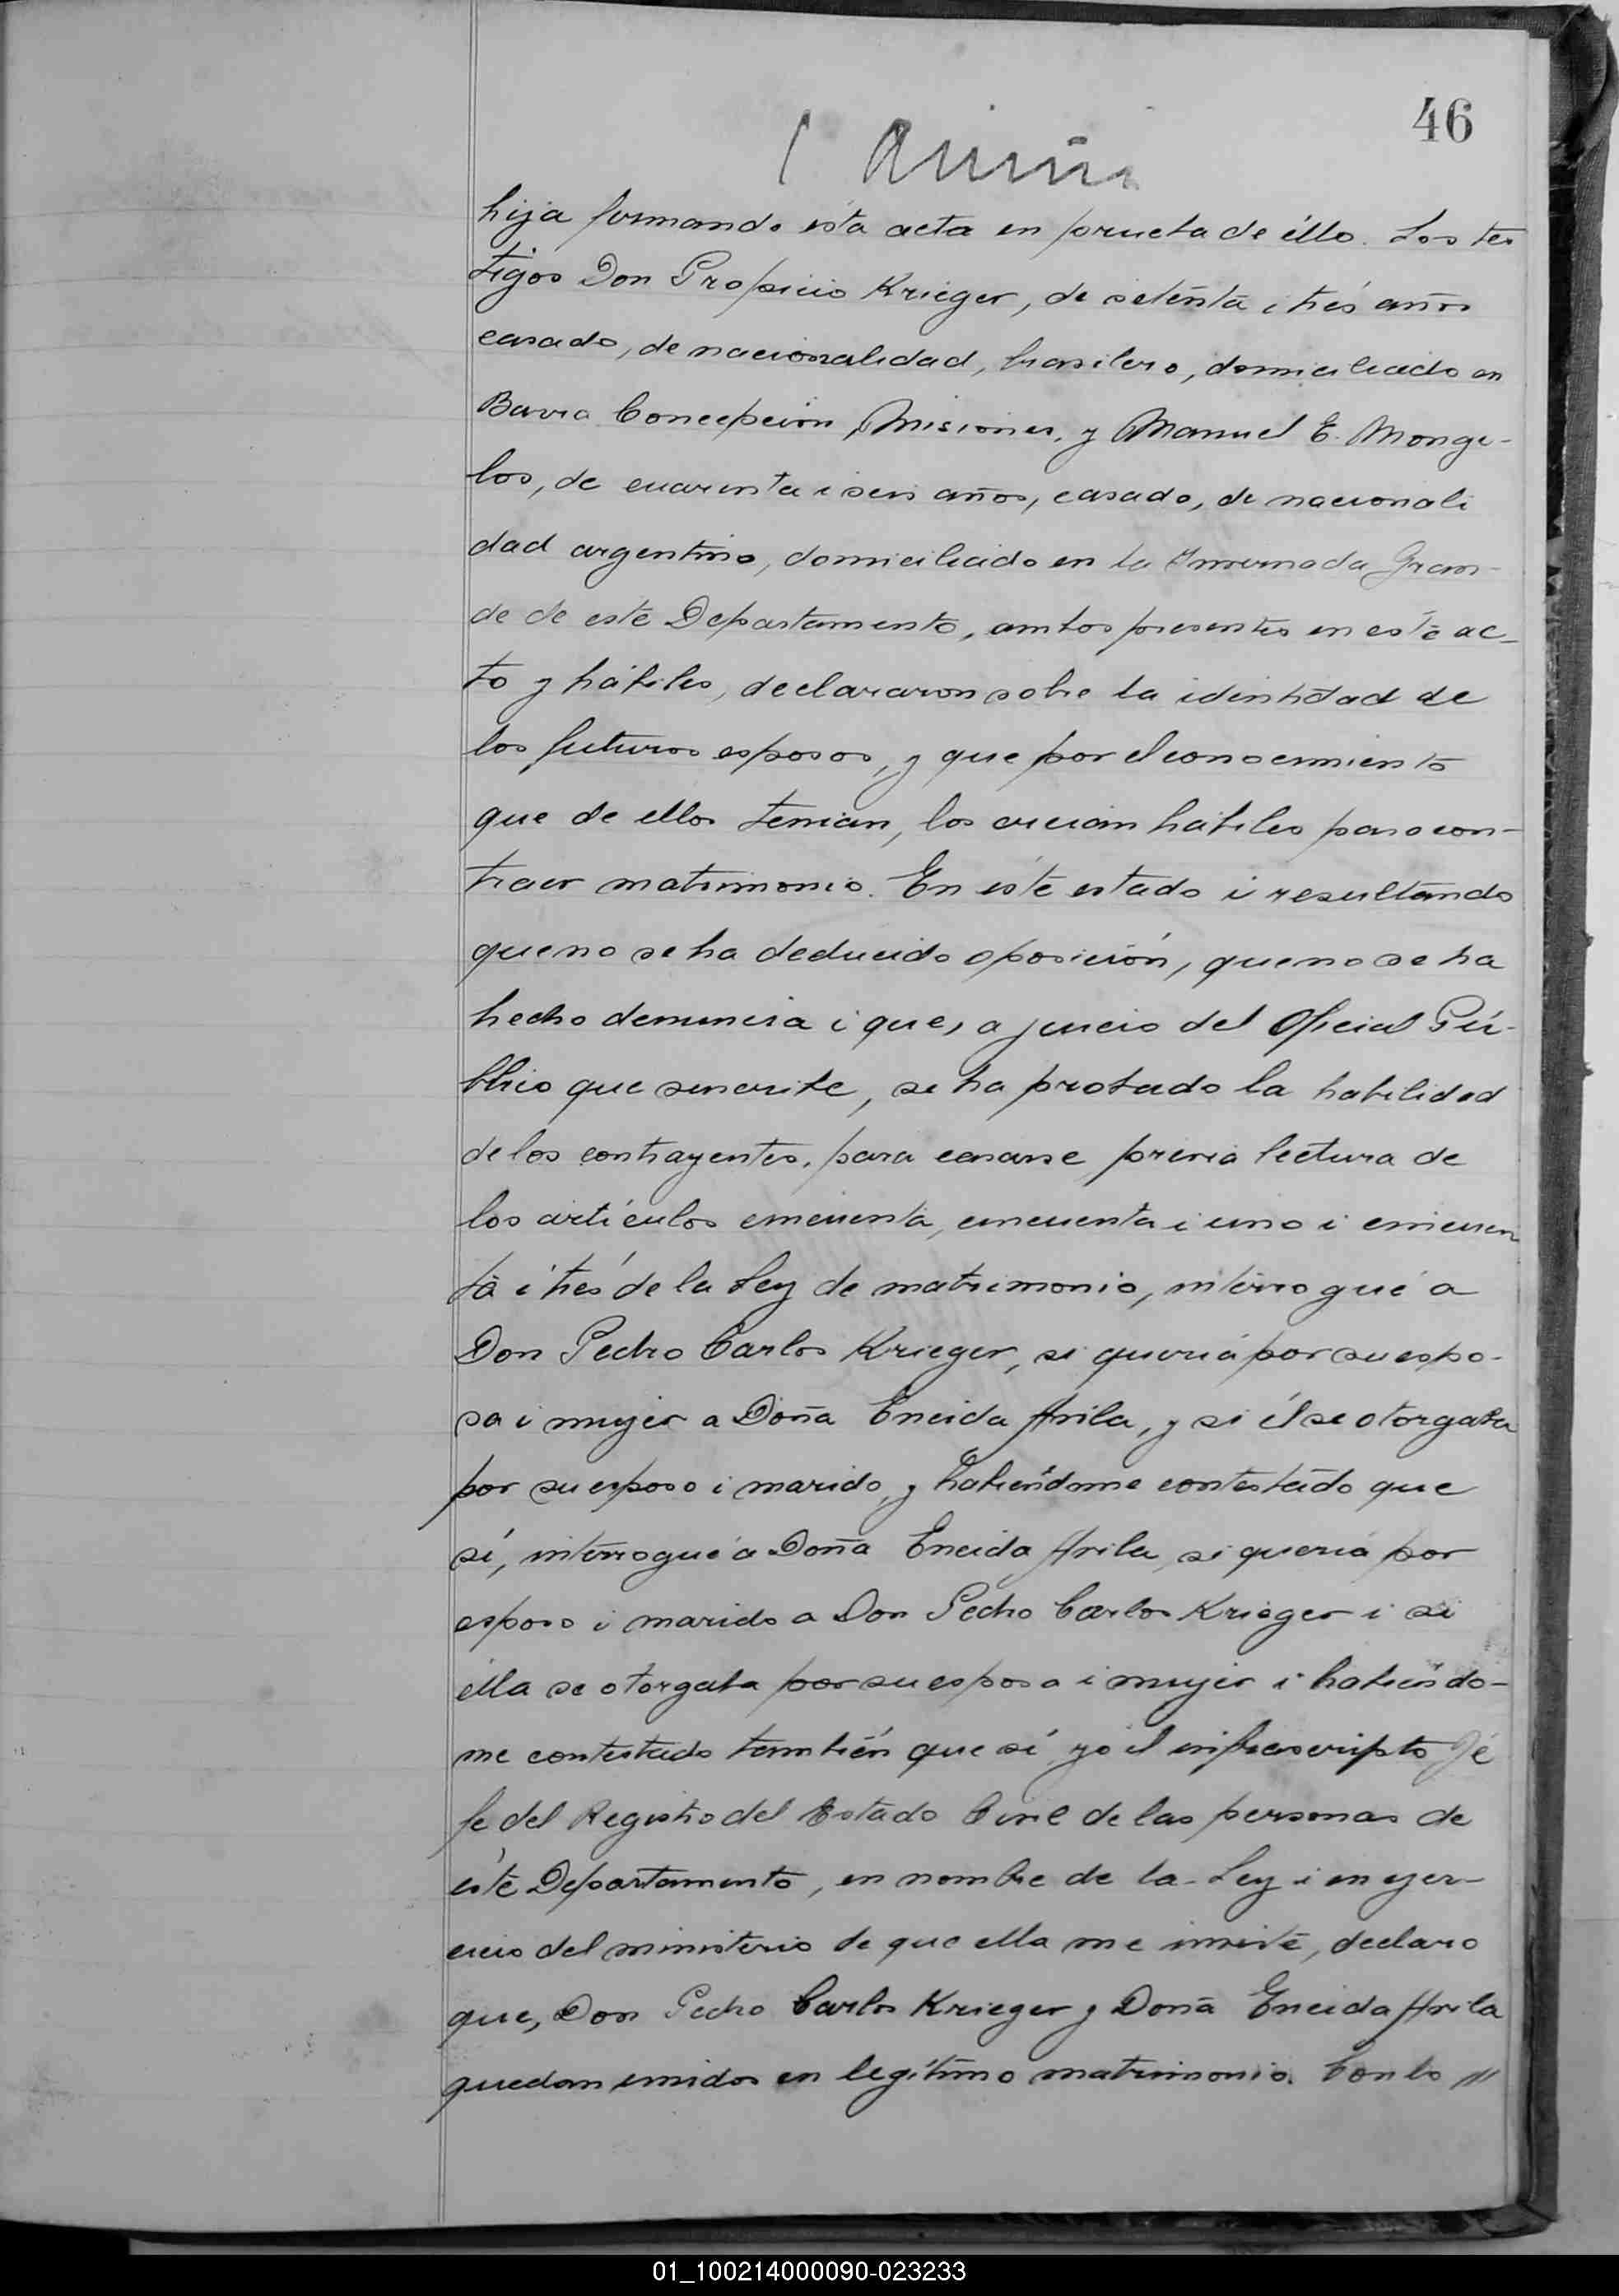 46
hija firmando ésta acta en prueba de éllo. Los tes
tigos Don Propicio Krieger, de setenta i tres años
casado, de nacionalidad, brasilero, domiciliado en
Barra Concepción, Misiones, y Manuel E. Monge-
los, de cuarenta i seis años, casado, de nacionali
dad argentino, domiciliado en la Invernada Gran-
de de este Departamento, ambos presentes en este ac-
to y hábiles, declararon sobre la identidad de
los futuros esposos, y que por el conocimiento
que de ellos tenian, los creian hábiles para con-
traer matrimonio. En éste estado i resultando
que no se ha deducido oposición, que no se ha
hecho denuncia i que, a juicio del Oficial Pú-
blico que suscribe, se ha probado la habilidad
de los contrayentes, para casarse previa lectura de
los artículos cincuenta, cincuenta i uno i cincuen
ta i trés de la Ley de matrimonio, interrogué a
Don Pedro Carlos Krieger, si quería por su espo-
sa i mujer a Doña Eneida Avila, y si él se otorgaba
por su esposo i marido, y habiéndome contestado que
sí, interrogué a Doña Eneida Avila, si quería por
esposo i marido a Don Pedro Carlos Krieger i si
élla se otorgaba por su esposa i mujer i habiéndo-
me contestado también que sí, yo el infrascripto Jé
fe del Registro del Estado Civil de las personas de
éste Departamento, en nombre de la Ley i en ejer-
cicio del ministerio de que ella me inviste, declaro
que, Don Pedro Carlos Krieger y Doña Eneida Avila
quedan unidos en legítimo matrimonio. Con lo //
01_100214000090-023233